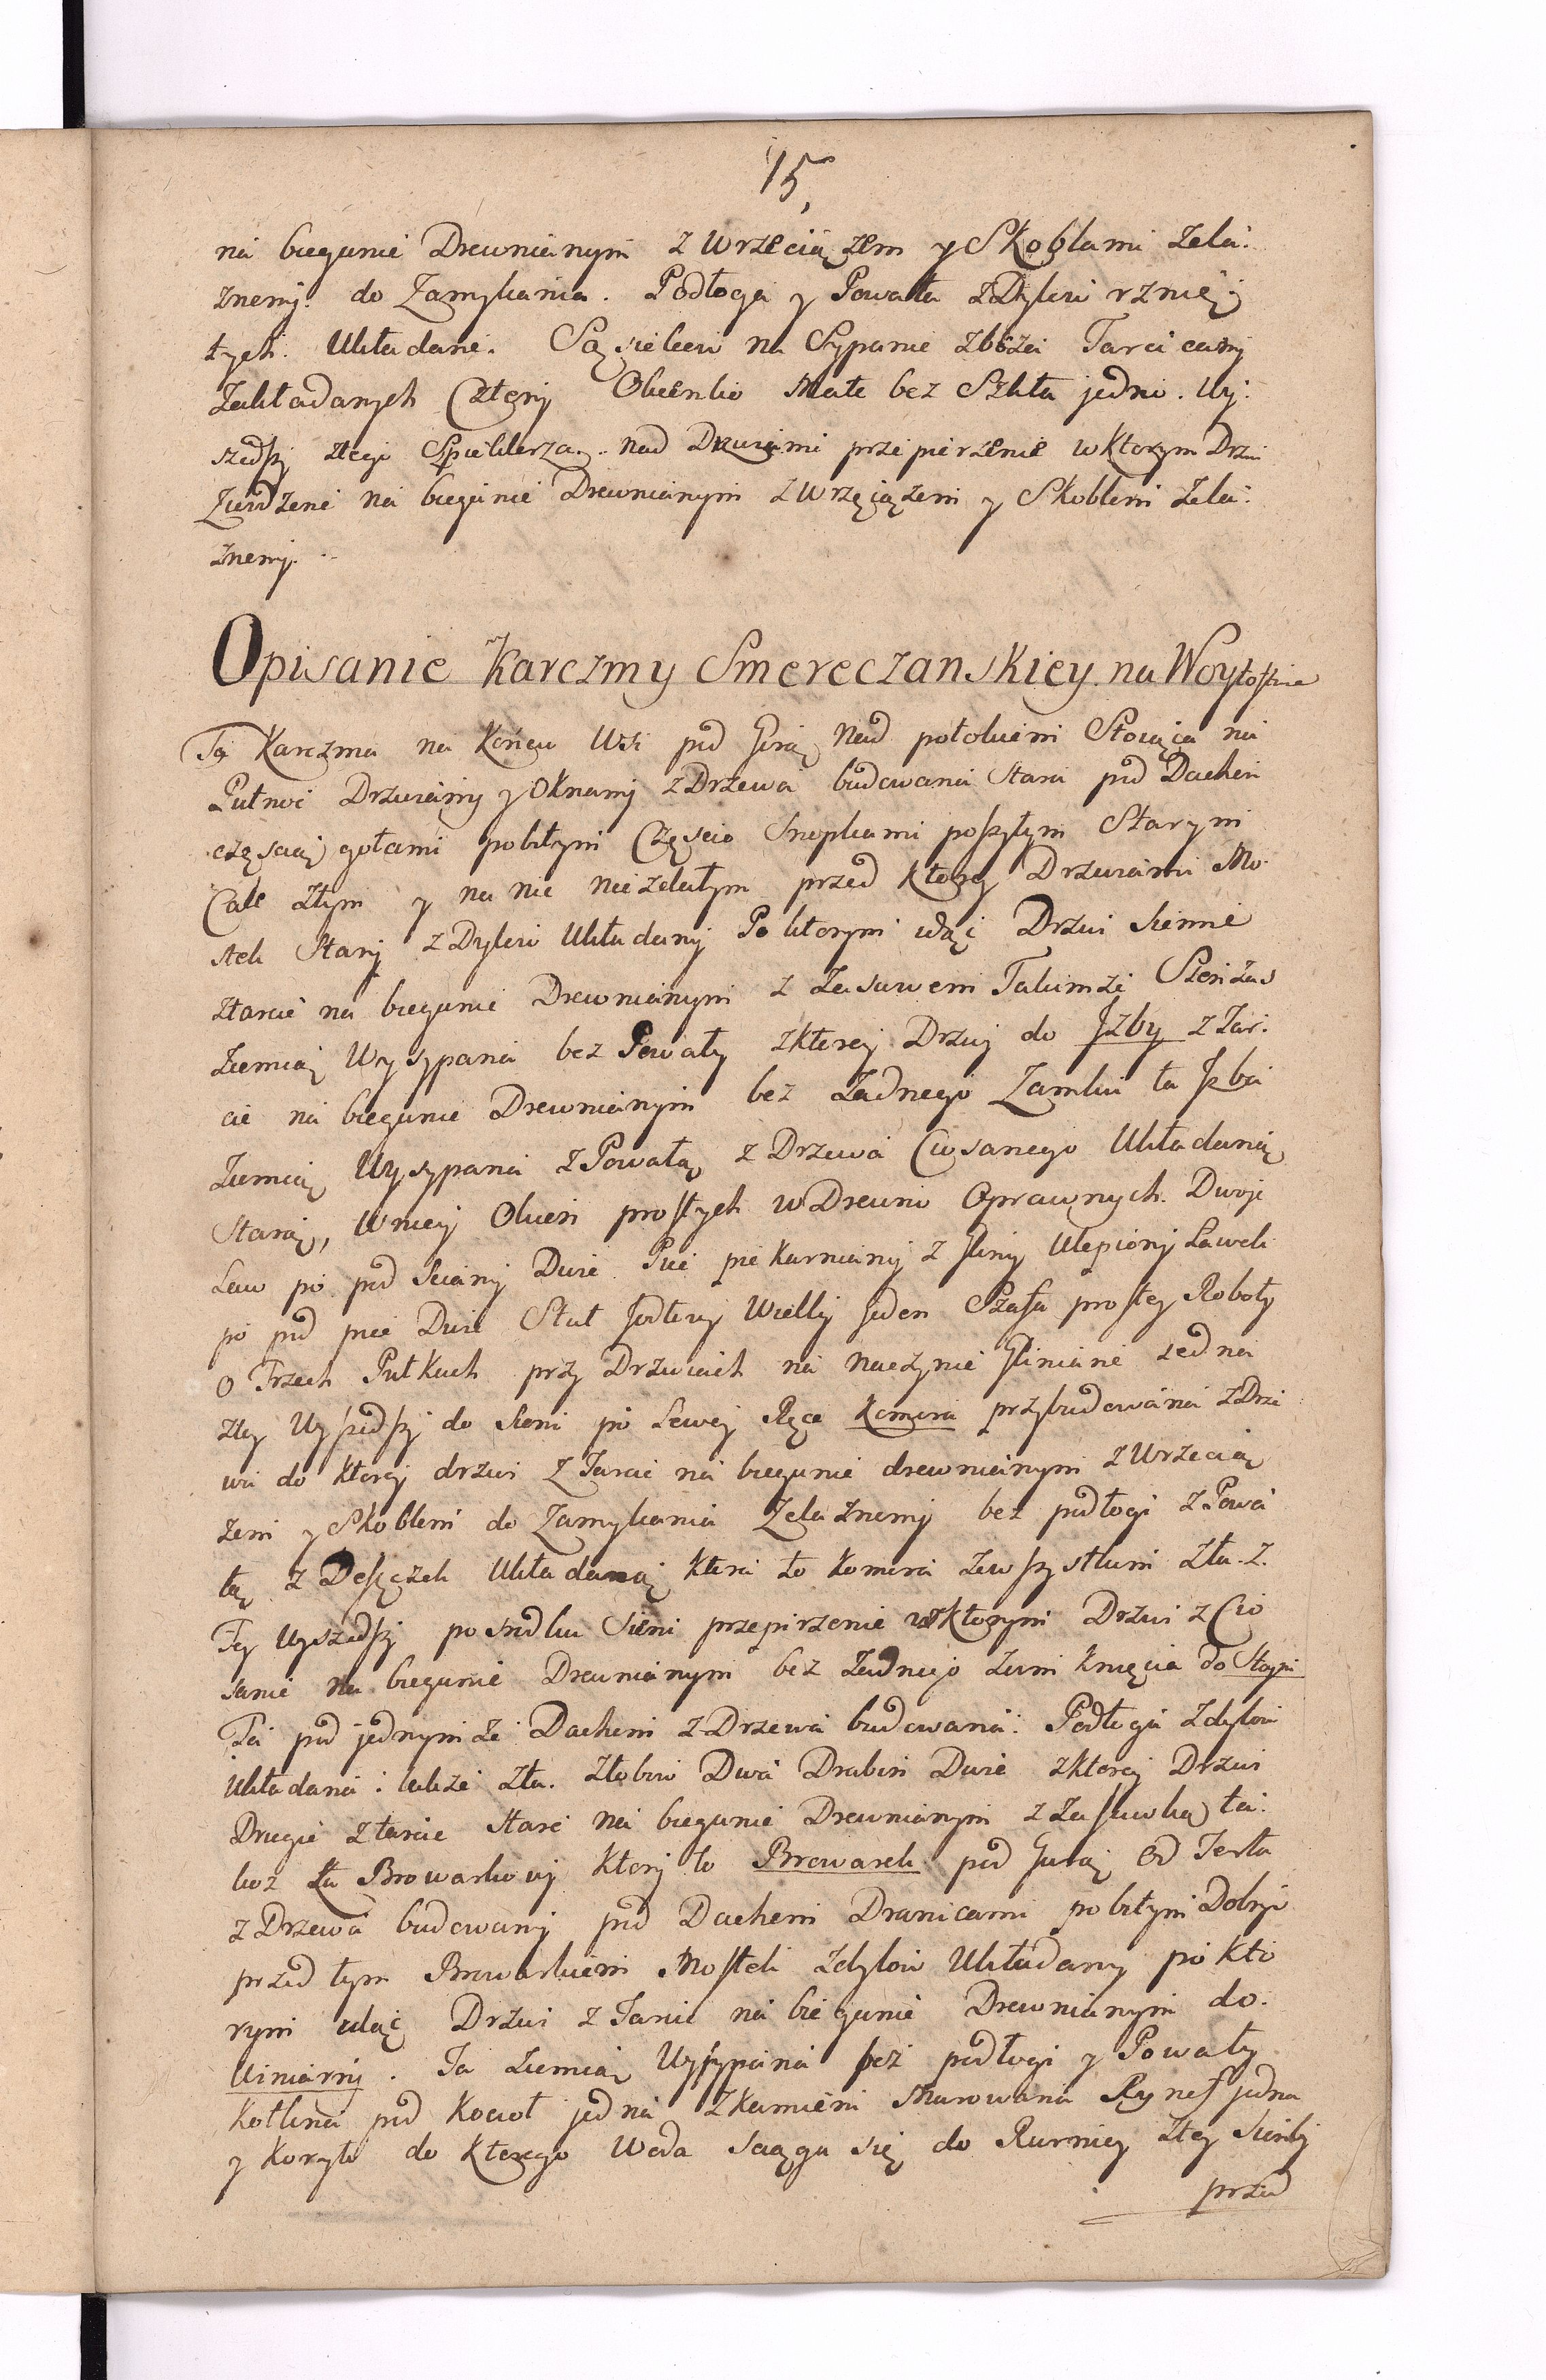 15,
na biegunie Drewnianym z Wrzeciązem y Skoblami Zela:
znemi. do Zamykania. Podłoga y Powała z Dylow rznię:
tych. Układane. Sąsiekow na Sypanie zboża Tarcicami
Zakładanych Cztery Okienko Małe bez Szkła jedno. Wy:
szedszy ztego Spichlerza. nad Drzwiami przepierzenie wktorym Drzwi
na biegunie Drewnianym z Wrzęciązem y Skoblem Zela:
znemi.
Opisanie Karczmy Smereczanskiey na Woytostwie
Ta Karczma na Końcu Wsi pod Gorą Nad potokiem Stoiąca na
Pułnoc Drzwiami y Oknami z Drzewa budowana Stara pod Dachem
częscią gątami pobitym Częscio Snopkami poszytym Starym
Cale Złym y na nic niezdatym przed ktorą Drzwiami Mo
stek Stary z Dylow Układany Po ktorym idąc Drzwi Sienne
ztarcic na biegunie Drewnianym z Zasuwem Takimże Sień zas
Ziemią Wysypana bez Powały zktorey Drzwi do Jzby z Tar:
cic na biegunie Drewnianym bez Zadnego Zamku ta Jzba
Ziemią Wysypana z Powałą z Drzewa Ciosanego Układaną
Starą, Wniey Okien prostych w Drewno Oprawnych. Dwoje
Law po pod Sciany Dwie Piec piekarniany z Gliny Ulepiony Lawek
po pod piec Dwie Stuł Jodłowy Wielki Jeden Szafa prostey Roboty
O Trzech Pułkach przy Drzwiach na Naczynie Gliniane jedna
ztey Wyszedszy do Sieni po Lewey Ręce Komora przybudowana z Drze
wa do ktorey drzwi z Tarcic na biegunie drewnianym z Wrzecią
zem y Skoblem do Zamykania Zelaznemi bez podłogi z Powa
łą z Deszczek Układaną ktora to Komora Zewszystkim Zła. Z.
Tey Wyszedszy posrodku Sieni przepirzenie wktorym Drzwi z Cio
sanic na biegunie Drewnianym bez Zadnego Zamknięcia do Stayni
Ta pod jednymże Dachem z Drzewa budowana: Podłoga Zdylow
Układana: także Zła. Złobow Dwa Drabin Dwie zktorey Drzwi
Drugie ztarcic stare na biegunie Drewnianym z Zasuwką ta:
koz Ku Browarkowi ktory to Browarek pod Gurą Od Jerła
z Drzewa budowany pod Dachem Dranicami pobitym Dobry
przed tym Browarkiem Mostek Zdylow Układany po kto
rym idąc Drzwi z Tarcic na biegunie Drewnianym do.
Winiarni. Ta Ziemią Wysypana bez podłogi y Powały
Kotlina pod Kocioł jedna z Kamieni Murowana Rynef jedna
y Koryto do ktorego Woda sciąga się do Rurnicy ztey
przed